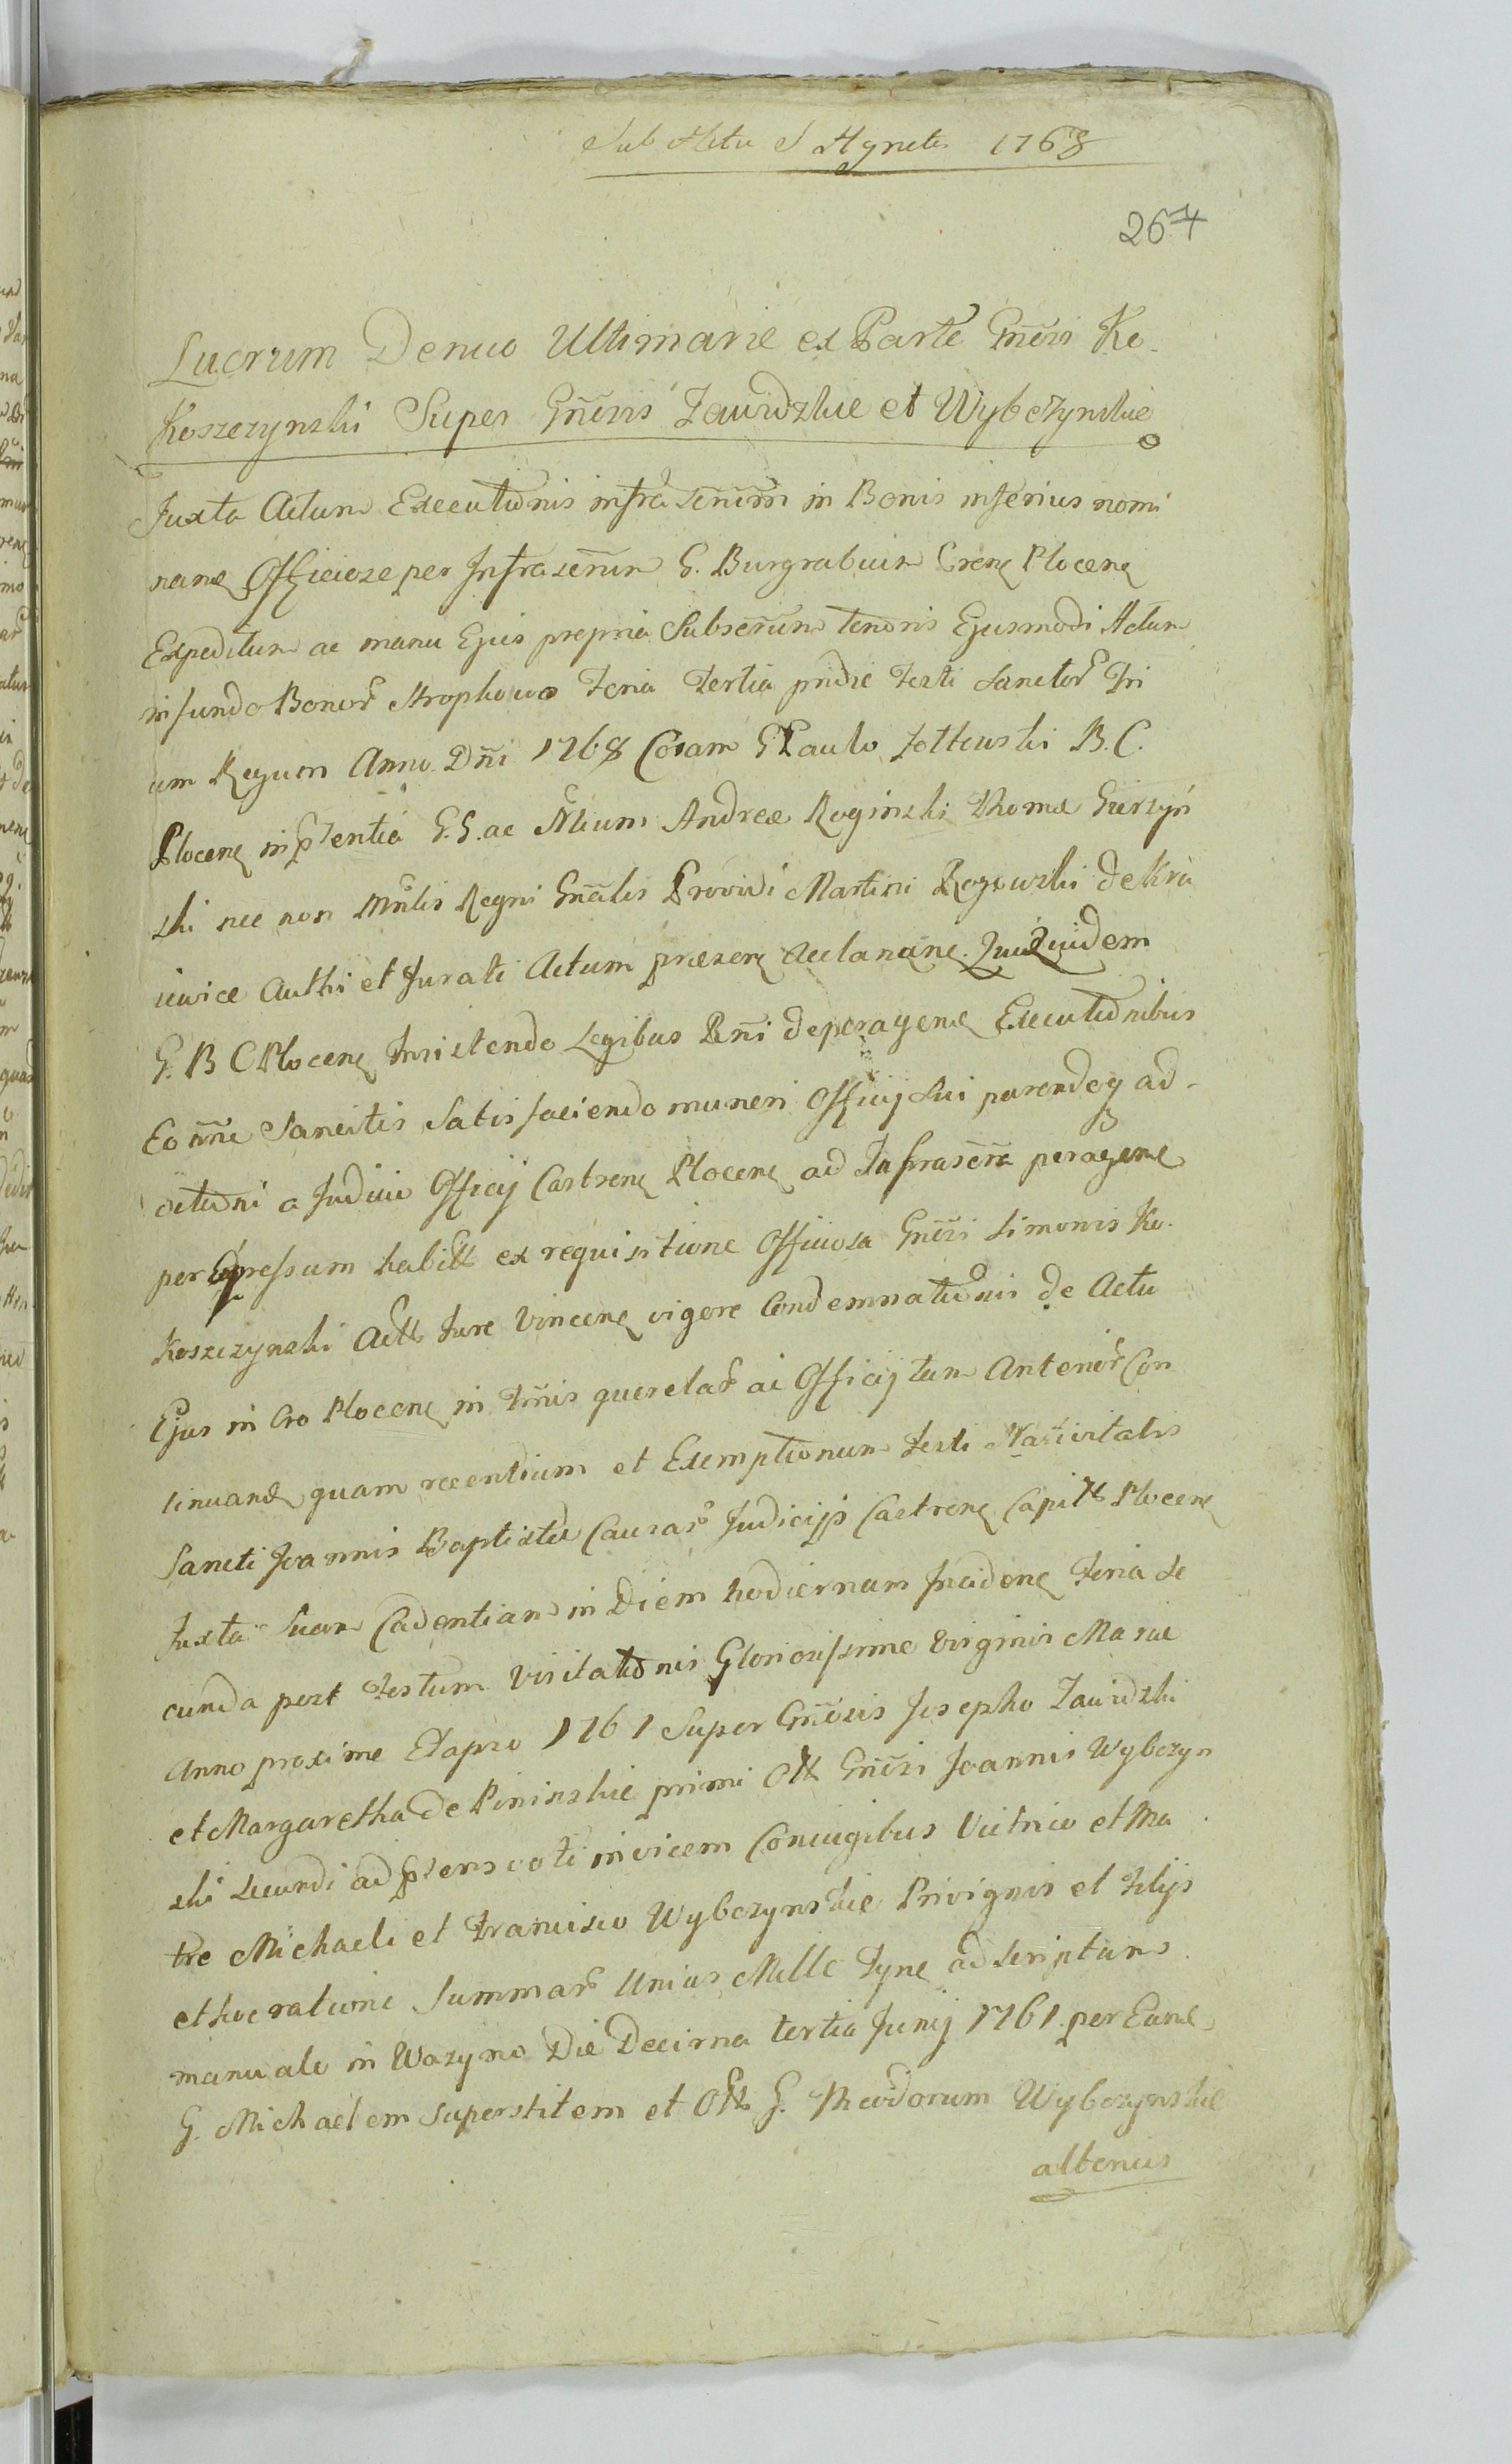 Sub Actu S Agnetis 1768
267
Lucrum Denuo Ultimarie ex Parte Gnẽsi Ko
Koszczynski Super Gnẽsis Zawidzkie et Wybczynskie
Juxta Actum Executionis infra scrm̃ in Bonis inferius nomi
nane Officiose per Infrascrm̃ G. Burgrabium Crene Plocene
Expeditum ac manu Ejus propria Subscrm̃ tenoris Ejusmodi Actum
in fundo Bonor Stropkowo Feria Tertia pridie Festi Sanctor Tri
um Regum Anno Dñi 1768 Coram G Paulo Zottowski B. C.
Plocene in pꝛentia G. G. ac Nlium Andreæ Roginski Thomæ Gierzyn
ski nec non Mnlis Regni Gnãlis Providi Martini Rogowski de Kra
iewice Authi et Jurati Actum præsene Acclanane. Qui Quidem
G. B C Plocene Insistendo Legibus Rñi de peragene Executionibus
Eo nñe Sancitis Satis faciendo muneri Officij Sui parendoq ad
ctioni a Judicio Officij Castrene Plocene ad Infrascrẽ peragene
per Expressum habitt ex requisitione Officiosa Gnẽsi Simonis Ko
Koszczynski Actt Jure Vincene vigore Condemnationis de Actu
Ejus in Cro Plocene in Tmis querelar ac Officij tam Anterior Con
tinuand quam recentium et Exemptionum Festi Nativitatis
Sancti Joannis Baptistæ Causar Judicijs Castrene Capitt Plocene
Juxta Suam Cadentiam in Diem hodiernam Incidene Feria Se
cunda post Festum Visitationis Gloriosissime Virginis Mariæ
Anno proxime Elapso 1761 Super Gnẽsis Josepho Zawidzki
et Margaretha de Pininskie primi Ott Gnẽsi Joannis Wybczyn
ski Secundi ad pꝛens voti invicem Conjugibus Vitrico et Ma
tre Michaeli et Francisco Wybczynskie Privignis et Filijs
et hoc ratione Summar Unius Mille Tyne ad Scriptum
manuale in Wozyno Die Decima tertia Junij 1761. per Eund
G. Michaelem Superstitem et Ott G. Theodorum Wybczynskie
alterius